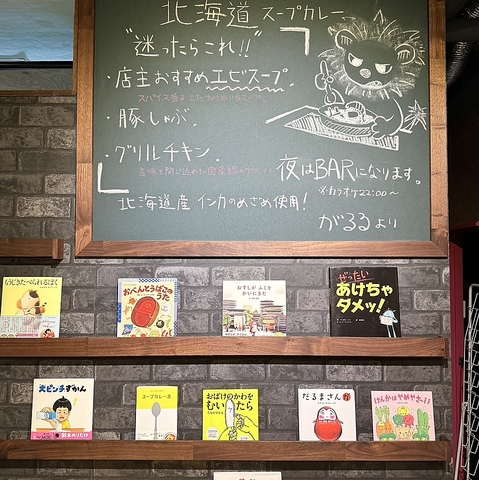 北海道 スープカレー
"迷ったらこれ!!"
・店主おすすめエビスープ。
・豚しゃぶ。
・グリルチキン。
夜はBARになります。
※カラオケ22:00〜
北海道産 インカのめざめ使用!
がるるより
もうじきたべられるぼく
おべんとうばこのうた
おすしが ふくを かいにきた
ぜったい
あけちゃ
ダメッ!
大ピンチずかん
スープカレー本
おばけのかわを
むいたら
だるまさんが
けんかはやめやさい!